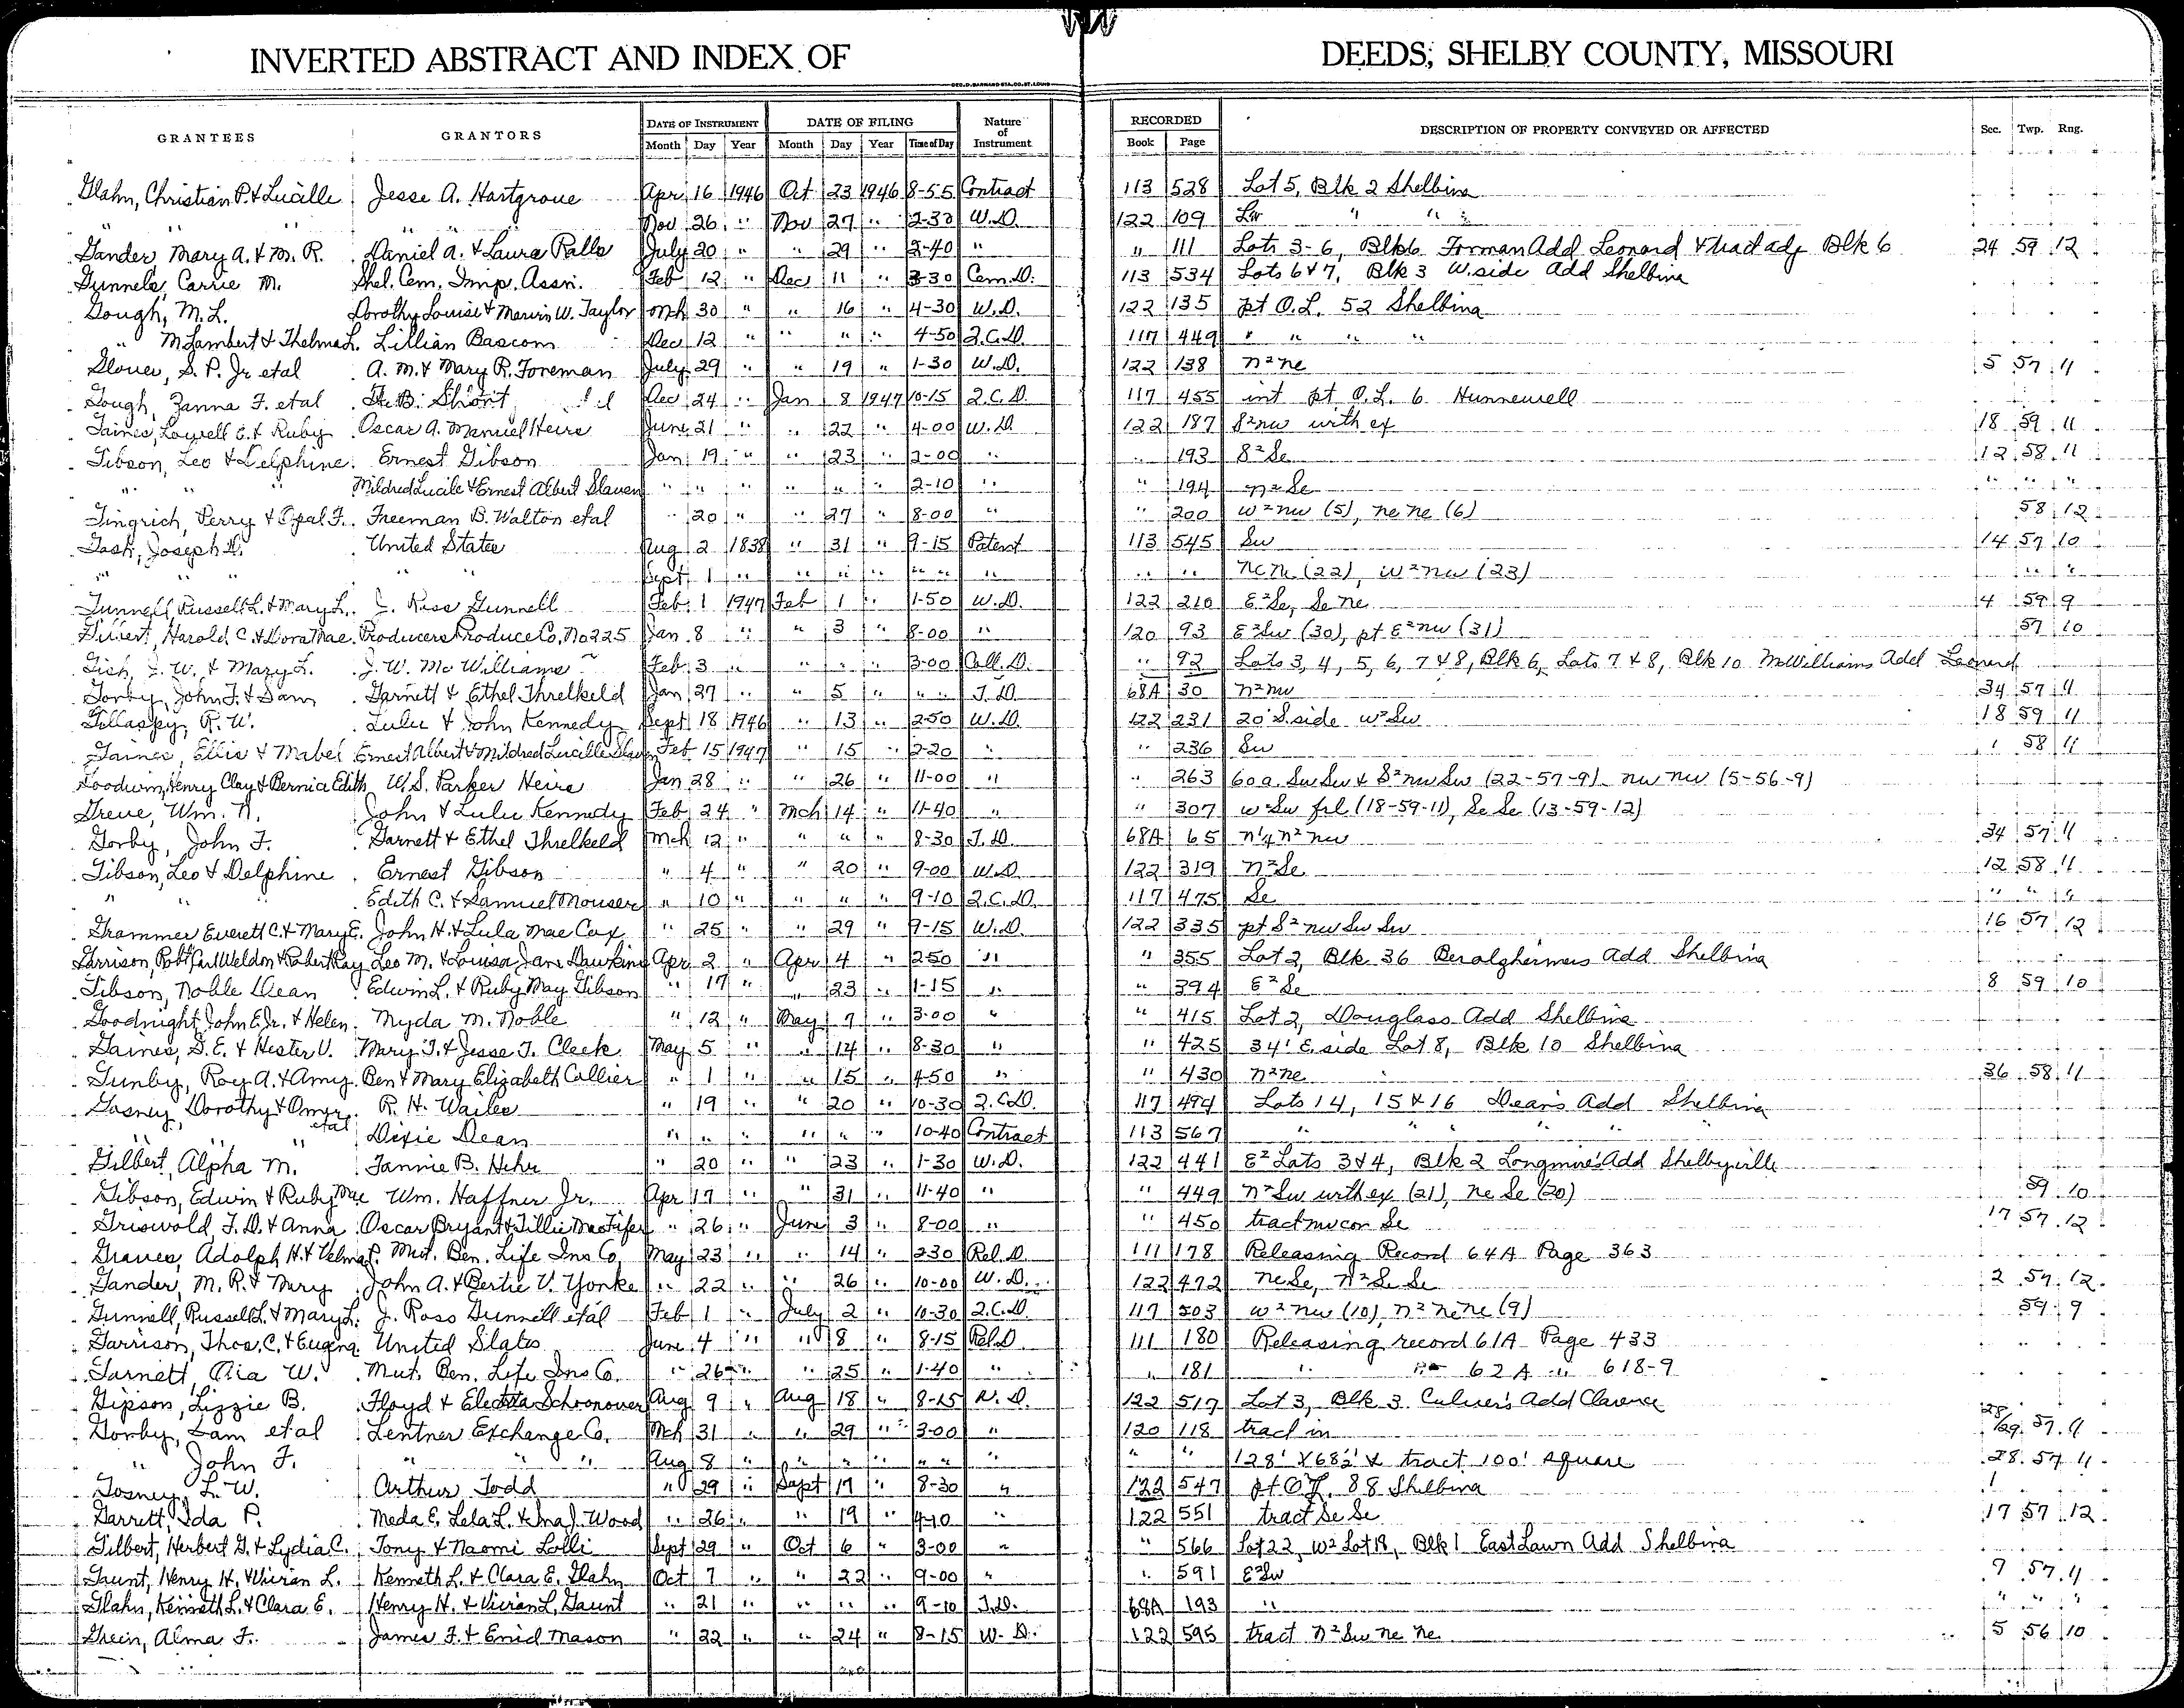 INVERTED ABSTRACT AND INDEX OF DEEDS, SHELBY COUNTY, MISSOURI
GEO. D. BARNARD STA. CO. ST. LOUIS
GRANTEES GRANTORS DATE OF INSTRUMENT DATE OF FILING Nature of Instrument RECORDED DESCRIPTION OF PROPERTY CONVEYED OR AFFECTED Sec. Twp. Rng.
Month Day Year Month Day Year Time of Day Book Page
Glahn, Christian P. & Lucille Jesse A. Hartgrove Apr 16 1946 Oct 23 1946 8-55 Contract 113 528 Lot 5, Blk 2 Shelbina
" " " Nov 26 " Nov 27 " 2-30 W.D. 122 109 " "
Gander, Mary A. & M. R. Daniel A. & Laura Ralls July 20 " " 29 " 2-40 " " 111 Lots 3-6, Blk 6 Forman Add Leonard & trad adj Blk 6 24 59 12
Gunnels, Carrie M. Shel. Cem. Imp. Assn. Feb 12 " Dec 11 " 3-30 Cem. D. 113 534 Lots 6 & 7, Blk 3 W. side Add Shelbina
Gough, M. L. Dorothy Louise & Marvin W. Taylor Mch 30 " " 16 " 4-30 W.D. 122 135 pt O.L. 52 Shelbina
" M Lambert & Thelma L. Lillian Bascom Dec 12 " " " " 4-50 Q.C.D. 117 449 " " " "
Glover, S. P. Jr etal A. M. & Mary R. Foreman July 29 " " 19 " 1-30 W.D. 122 138 N²ne 5 57 11
Gough, Zanna F. etal Short Dec 24 " Jan 8 1947 10-15 Q.C.D. 117 455 int pt O.L. 6 Hunnewell
Gaines, Lowell E. & Ruby Oscar A. Manuel Heirs June 21 " " 22 " 4-00 W.D. 122 187 S²nw with ex 18 59 11
Gibson, Leo & Delphine Ernest Gibson Jan 19 " " 23 " 2-00 " " 193 S²Se 12 58 11
" " " Mildred Lucile & Ernest Albert Slaven " " " " " " 2-10 " " 194 n²Se " " "
Gingrich, Perry & Opal F. Freeman B. Walton etal " 20 " " 27 " 8-00 " " 200 w²nw (5), ne ne (6) 58 12
Gash, Joseph D. United States Aug 2 1838 " 31 " 9-15 Patent 113 545 Sw 14 57 10
" " " " " Sept 1 " " " " " " " " " ne ne (22), w²nw (23) " " "
Gunnell, Russell L. & Mary L. J. Ross Gunnell Feb 1 1947 Feb 1 " 1-50 W.D. 122 210 E²Se, Se ne 4 59 9
Gilbert, Harold C. & Dora Mae Producers Produce Co. No 225 Jan 8 " " 3 " 8-00 " 120 93 E²Sw (30), pt E²nw (31) 57 10
Gish, J. W. & Mary L. J. W. McWilliams Feb 3 " " " " 3-00 Coll. D. " 92 Lots 3, 4, 5, 6, 7 & 8, Blk 6, Lots 7 & 8, Blk 10 McWilliams Add Leonard
Gorby, John F. & Sam Garnett & Ethel Threlkeld Jan 27 " " 5 " " " T.D. 68A 30 n²nw 34 57 11
Gillaspy, R. W. Lulu & John Kennedy Sept 18 1946 " 13 " 2-50 W.D. 122 231 20' S. side w²Sw 18 59 11
Gaines, Ellis & Mabel Ernest Albert & Mildred Lucille Slaven Feb 15 1947 " 15 " 2-20 " " 236 Sw 1 58 11
Goodwin, Henry Clay & Bernice Edith W. S. Parker Heirs Jan 28 " " 26 " 11-00 " " 263 60a. Sw Sw & S²nw Sw (22-57-9) nw nw (5-56-9)
Greve, Wm. N. John & Lulu Kennedy Feb 24 " Mch 14 " 11-40 " " 307 w²Sw frl (18-59-11), Se Se (13-59-12)
Gorby, John F. Garnett & Ethel Threlkeld Mch 12 " " " " 8-30 T.D. 68A 65 n¼ n² nw 34 57 11
Gibson, Leo & Delphine Ernest Gibson " 4 " " 20 " 9-00 W.D. 122 319 N²Se 12 58 11
" " " Edith C. & Samuel Mouser " 10 " " " " 9-10 Q.C.D. 117 475 Se " " "
Grammer Everett C. & Mary E. John H. & Lula Mae Cox " 25 " " 29 " 9-15 W.D. 122 335 pt S² nw Sw Sw 16 57 12
Garrison, Robt Carl Weldon & Robert Ray Leo M. & Louisa Jane Dawkins Apr 2 " Apr 4 " 2-50 " " 355 Lot 2, Blk 36 Add Shelbina
Gibson, Noble Dean Edwin L. & Ruby May Gibson " 17 " " 23 " 1-15 " " 394 E²Se 8 59 10
Goodnight, John E. Jr. & Helen Myda M. Noble " 12 " May 7 " 3-00 " " 415 Lot 2, Douglass Add Shelbina
Gaines, G. E. & Hester V. Mary T. & Jesse T. Cleek May 5 " " 14 " 8-30 " " 425 34' E. side Lot 8, Blk 10 Shelbina
Gunby, Roy A. & Amy Ben & Mary Elizabeth Collier " 1 " " 15 " 4-50 " " 430 N²ne 36 58 11
Gosney, Dorothy & Omer etal R. H. Wailes " 19 " " 20 " 10-30 Q.C.D. 117 494 Lots 14, 15 & 16 Dean's Add Shelbina
" " " Dixie Dean " " " " " " 10-40 Contract 113 567 " " " "
Gilbert, Alpha M. Fannie B. Hehr " 20 " " 23 " 1-30 W.D. 122 441 E² Lots 3 & 4, Blk 2 Longmire's Add Shelbyville
Gibson, Edwin & Ruby Mae Wm. Haffner Jr. Apr 17 " " 31 " 11-40 " " 449 N²Sw with ex (21), ne Se (20) 59 10
Griswold, F. D. & Anna Oscar Bryant & Tillie Mae Fifer " 26 " June 3 " 8-00 " " 450 tract nw cor Se 17 57 12
Graves, Adolph H. & Velma P. Mut. Ben. Life Ins Co. May 23 " " 14 " 2-30 Rel. D. 111 178 Releasing Record 64A Page 363
Gander, M. R. & Mary John A. & Bertie V. Yonke " 22 " " 26 " 10-00 W.D. 122 472 ne Se, N²Se Se 2 57 12
Gunnell, Russell L. & Mary L. J. Ross Gunnell etal Feb 1 " July 2 " 10-30 Q.C.D. 117 503 w²nw (10), N² ne ne (9) 59 9
Garrison, Thos. C. & Eugena United States June 4 " " 8 " 8-15 Rel. D 111 180 Releasing record 61A Page 433
Garnett, W. Mut. Ben. Life Ins Co. " 26 " " 25 " 1-40 " " 181 " 62A " 618-9
Gipson, Lizzie B. Floyd & Electa Schoonover Aug 9 " Aug 18 " 8-15 W.D. 122 517 Lot 3, Blk 3 Culver's Add Clarence
Gorby, Sam etal Lentner Exchange Co. Mch 31 " " 29 " 3-00 " 120 118 tract in 28/29 57 11
" John F. " " " Aug 8 " " " " " " " " " 128' X 68½' & tract 100' square 28 57 11
Gosney, L. W. Arthur Todd " 29 " Sept 17 " 8-30 " 122 547 pt O.L. 88 Shelbina
Garrett, Ida P. Meda E. Lela L. & Ina J. Wood " 26 " " 19 " 4-10 " 122 551 tract Se Se 17 57 12
Gilbert, Herbert G. & Lydia C. Tony & Naomi Lolli Sept 29 " Oct 6 " 3-00 " " 566 Lot 22, W² Lot 18, Blk 1 East Lawn Add Shelbina
Gaunt, Henry H. & Vivian L. Kenneth L. & Clara E. Glahn Oct 7 " " 22 " 9-00 " " 591 E²Sw 9 57 11
Glahn, Kenneth L. & Clara E. Henry H. & Vivian L. Gaunt " 21 " " " " 9-10 T.D. 68A 193 " " " "
Grein, Alma F. James F. & Enid Mason " 22 " " 24 " 8-15 W.D. 122 595 tract N²Sw ne ne 5 56 10